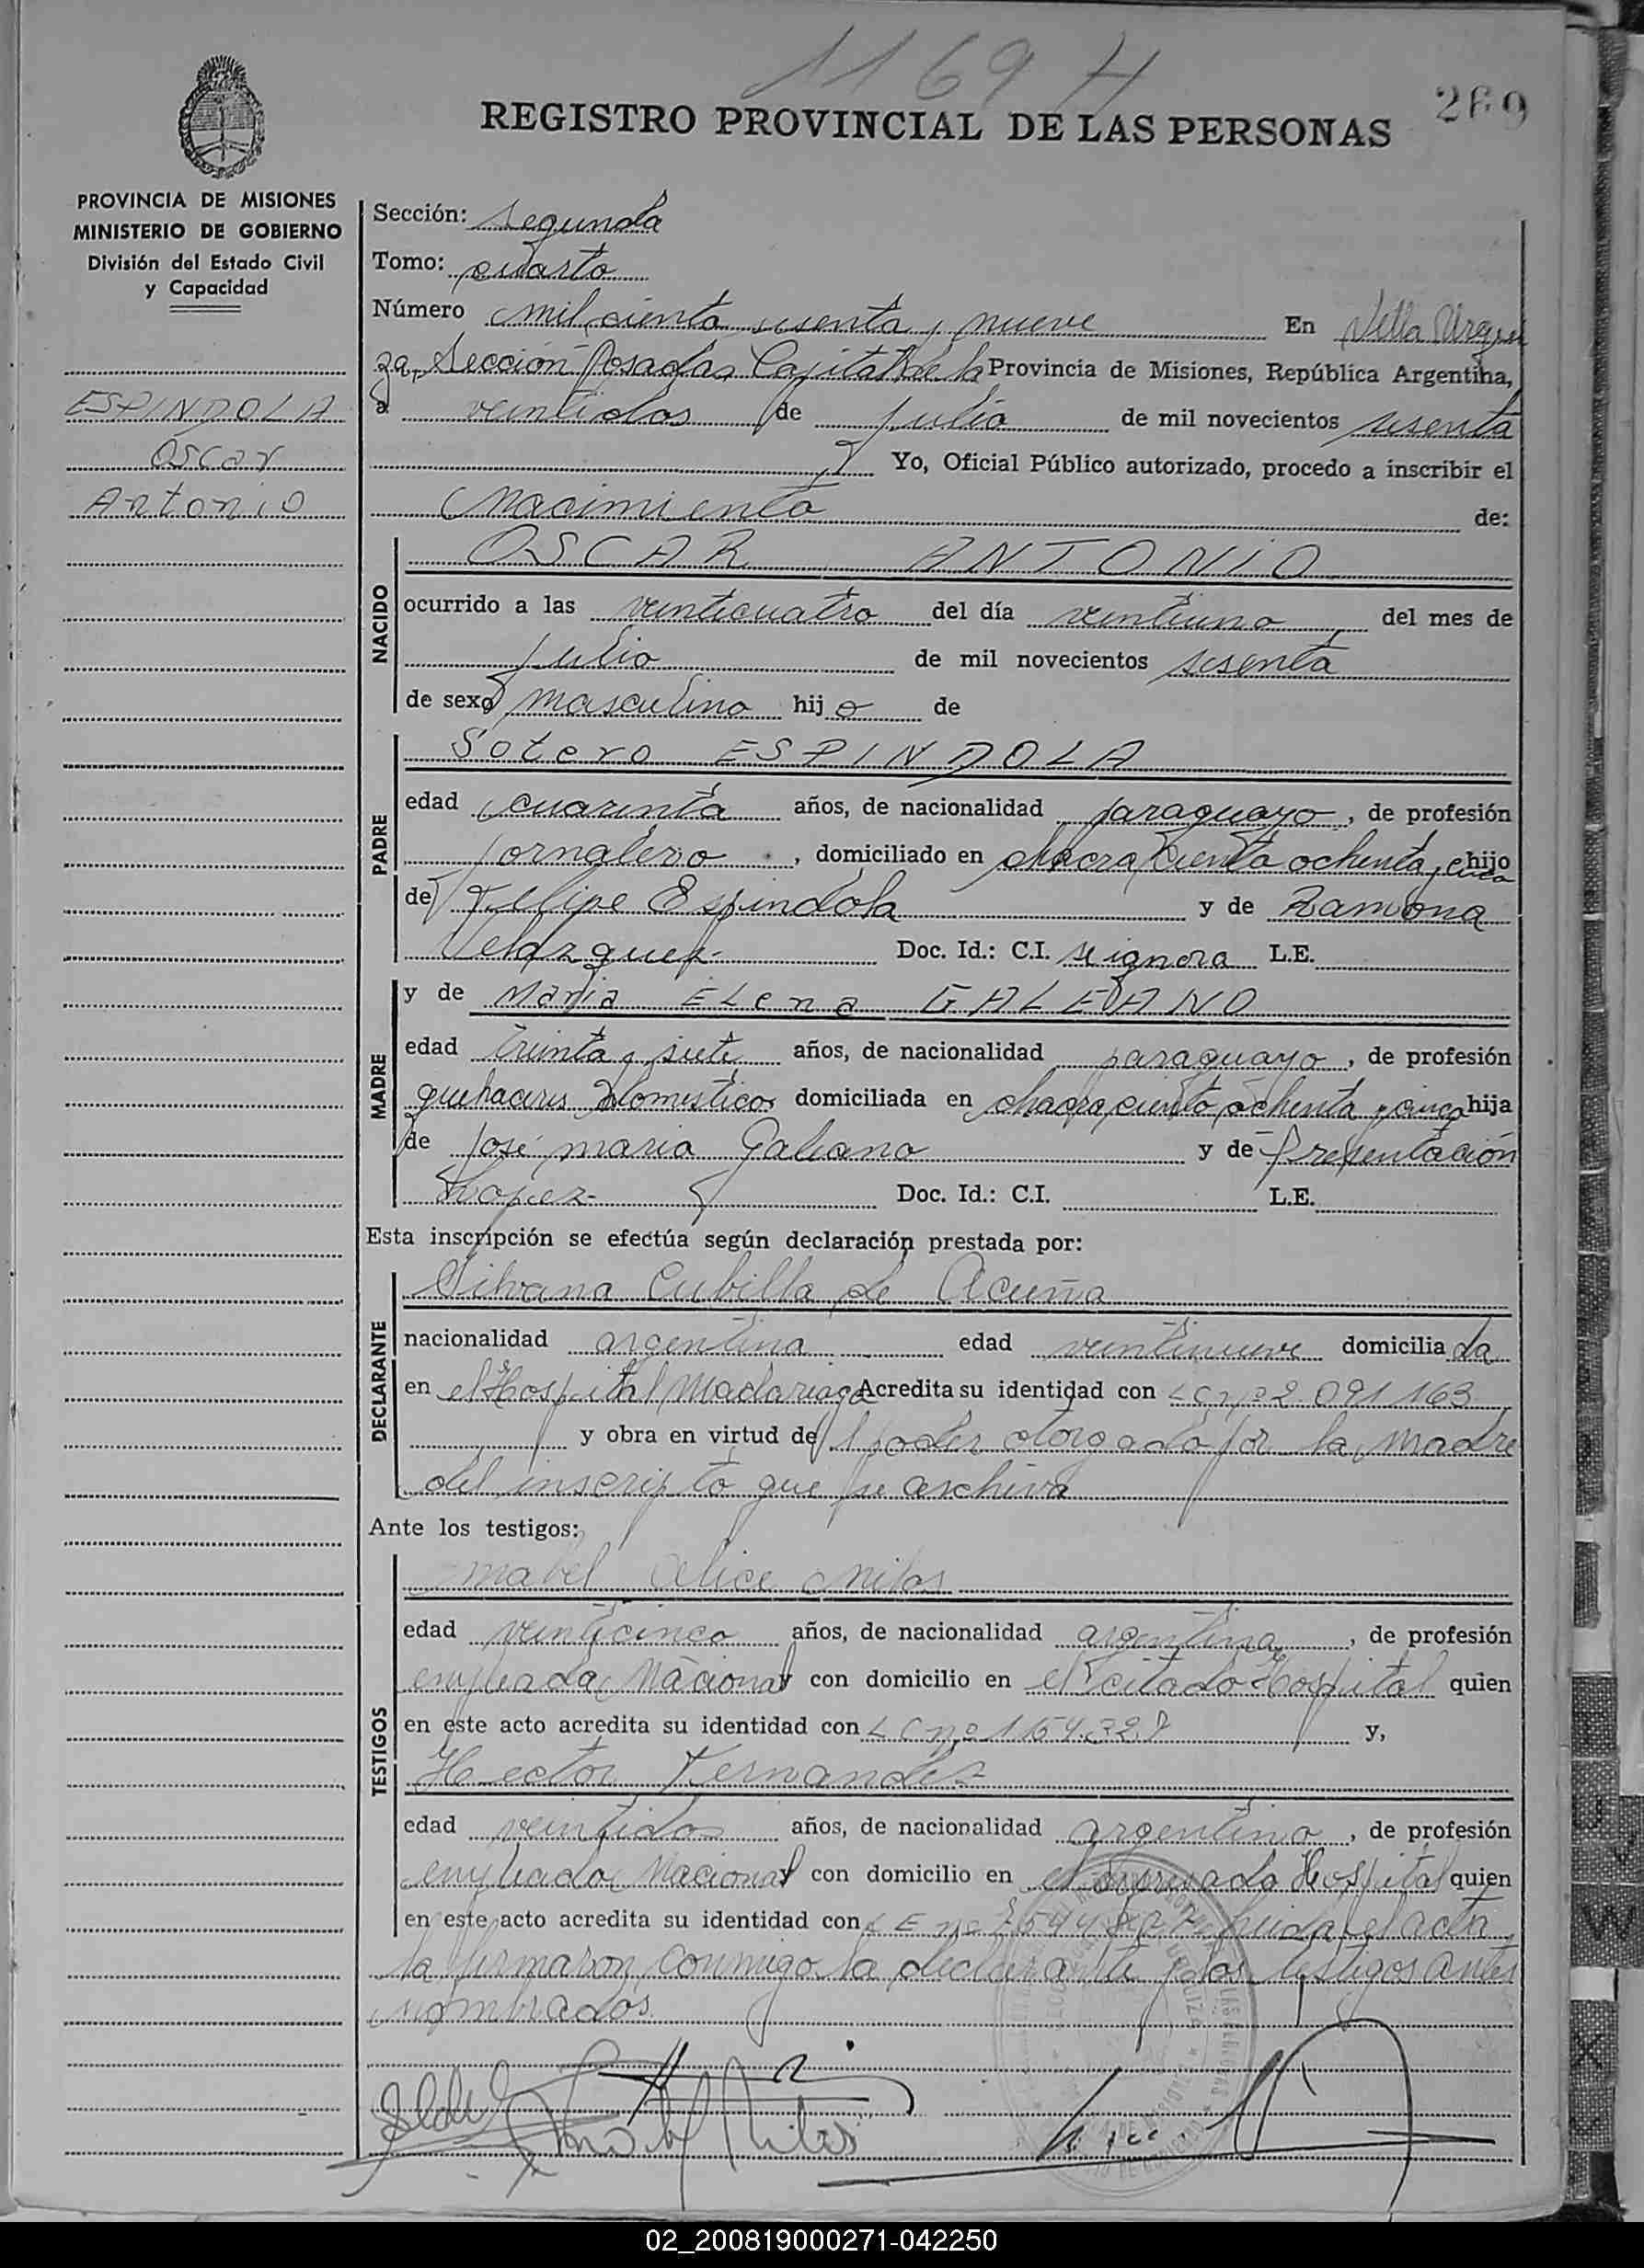 1169 H
269
REGISTRO PROVINCIAL DE LAS PERSONAS
PROVINCIA DE MISIONES
MINISTERIO DE GOBIERNO
División del Estado Civil
y Capacidad
ESPINDOLA
Oscar
Antonio
Sección: segunda
Tomo: cuarto
Número mil ciento sesenta y nueve En Villa Urqui
za, Sección Posadas Capital de la Provincia de Misiones, República Argentina,
a veintidos de julio de mil novecientos sesenta
Yo, Oficial Público autorizado, procedo a inscribir el
Nacimiento de:
NACIDO
OSCAR ANTONIO
ocurrido a las veinticuatro del día veintiuno del mes de
julio de mil novecientos sesenta
de sexo masculino hijo de
PADRE
Sotero ESPINDOLA
edad cuarenta años, de nacionalidad paraguayo, de profesión
jornalero, domiciliado en chacra ciento ochenta y cinco hijo
de Felipe Espindola y de Ramona
Velazquez.- Doc. Id.: C.I. se ignora L.E.
MADRE
y de Maria Elena GALEANO
edad treinta y siete años, de nacionalidad paraguayo, de profesión
quehaceres domesticos domiciliada en chacra ciento ochenta y cinco hija
de José maria Galeano y de Presentación
Lopez.- Doc. Id.: C.I. L.E.
Esta inscripción se efectúa según declaración prestada por:
DECLARANTE
Silvana Cubilla de Acuña
nacionalidad argentina edad veintinueve domiciliada
en el Hospital Madariaga Acredita su identidad con LC nº 2.091.163
y obra en virtud del poder otorgado por la madre
del inscripto que se archiva
Ante los testigos:
TESTIGOS
Mabel Alice Mitos
edad veinticinco años, de nacionalidad argentina, de profesión
empleada Nacional con domicilio en el citado Hospital quien
en este acto acredita su identidad con LC nº 1.154.328 y,
Hector Fernandez
edad veintidos años, de nacionalidad argentino, de profesión
empleado Nacional con domicilio en el expresado Hospital quien
en este acto acredita su identidad con LE nº leida el acta
la firmaron conmigo la declarante y los testigos antes
nombrados.
02_200819000271-042250